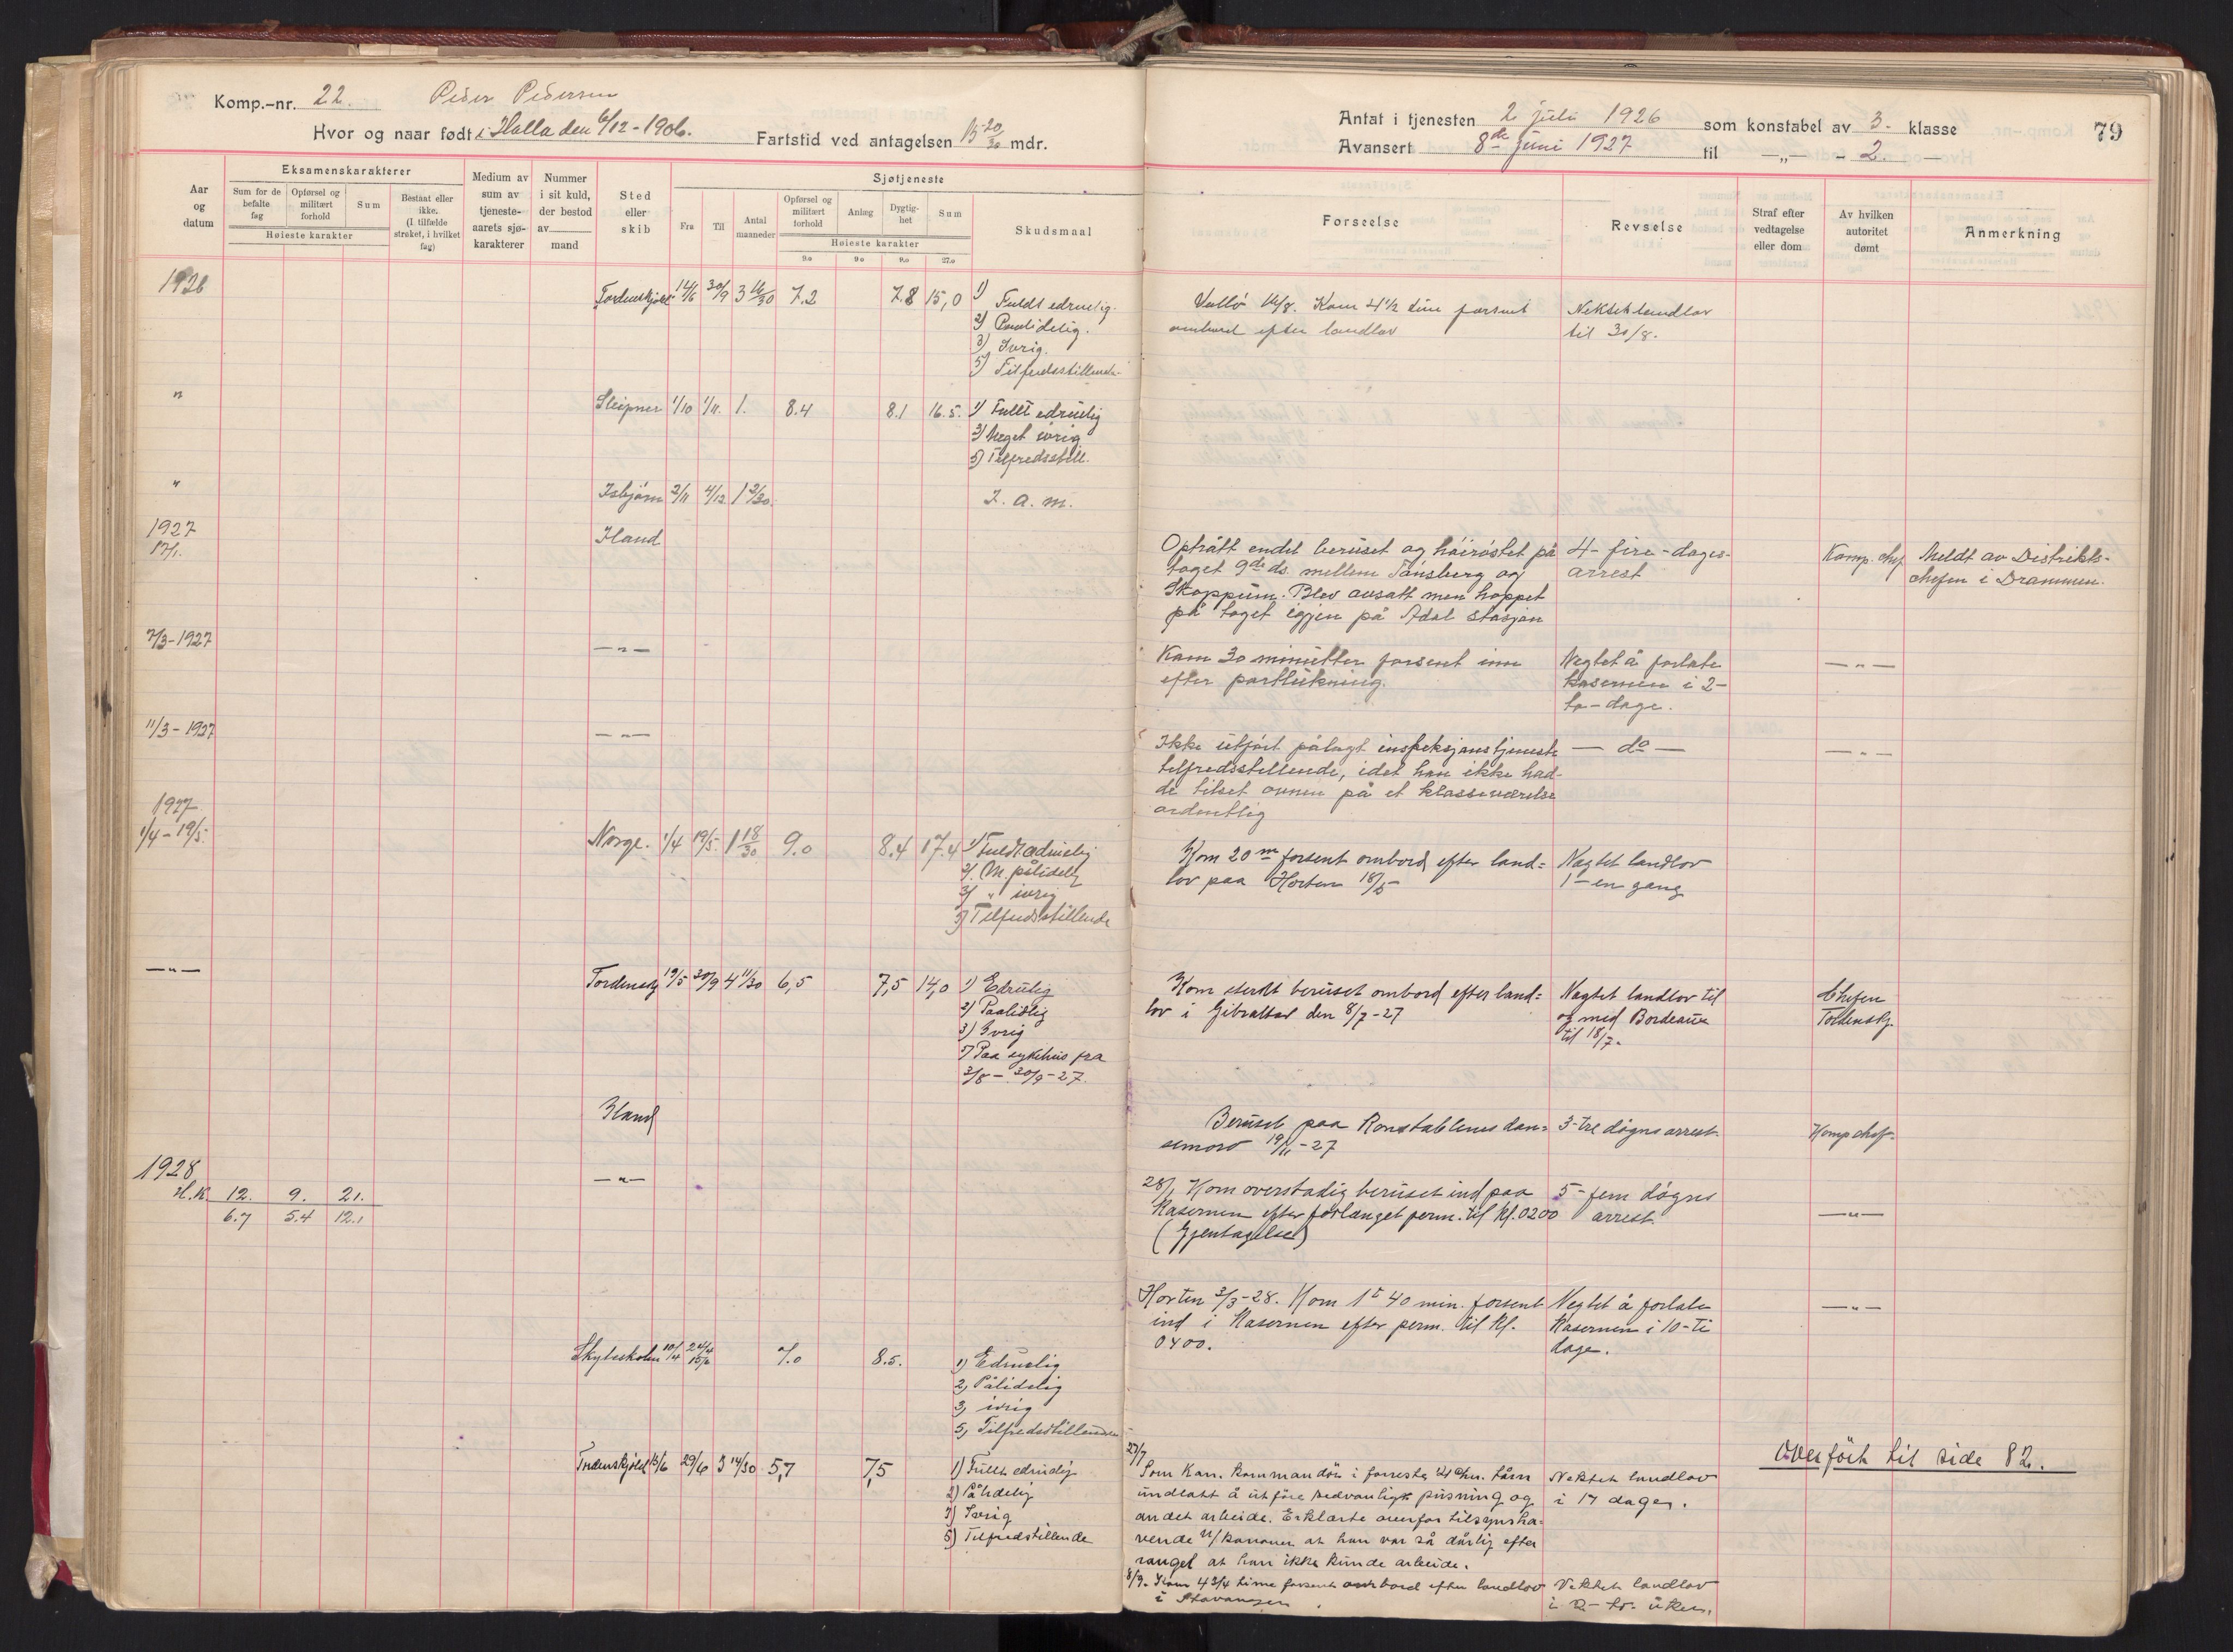 Komp.-nr. 22. Peder Pedersen
Hvor og naar født i Holla den 6/12-1906. Fartstid ved antagelsen 15 20/30 mdr.
Aar og datum
Eksamenskarakterer
Sum for de befalte fag
Opførsel og militært forhold
Sum
Høieste karakter
Bestaat eller ikke. (I tilfælde strøket, i hvilket fag)
Medium av sum av tjeneste-aarets sjø-karakterer
Nummer i sit kuld, der bestod av mand
Sted eller skib
Sjøtjeneste
Fra
Til
Antal maaneder
Opførsel og militært forhold
Anlæg
Dygtig-het
Sum
Høieste karakter
9.0 9.0 9.0 27.0
Skudsmaal
1926 Tordenskjold 14/6 30/9 3 16/30 7.2 7.8 15,0 1) Fuldt edruelig.
2) Paalidelig.
3) Ivrig.
5) Tilfredsstillende.
" Sleipner 1/10 1/11. 1. 8.4 8.1 16.5. 1) Fullt edruelig
3) Meget ivrig
5) Tilfredsstill.
" Isbjørn 2/11 4/12 1 2/30. I. a. m.
1927
17/1. Iland
7/3-1927 — " —
11/3-1927 — " —
1927
1/4-19/5. Norge. 1/4 19/5. 1 18/30 9.0 8.4 17.4 1) Fuldt edruelig
2). M. pålidelig
3) " ivrig
5) Tilfredsstillende
— " — Tordenskj 19/5 30/9 4 11/30 6,5 7,5 14,0 1) Edruelig
2) Paalidlig
3) Ivrig
5) Paa sykehus fra
3/8 - 30/9-27.
Iland
1928 — " —
H.K. 12. 9. 21.
6.7 5.4 12.1
Skyteskolen 10/4 7.0 8.5. 1) Edruelig
2, Pålidelig
3, ivrig
5, Tilfredsstillende
Tordenskjold 15/6 29/9 3 14/30 5,7 7,5 1) Fullt edruelig
2) Pålidelig
3) Ivrig
5) Tilfredstillende
Antat i tjenesten 2 juli 1926 som konstabel av 3. klasse 79
Avansert 8de juni 1927 til — „ — - 2. —
Forseelse
Revselse
Straf efter vedtagelse eller dom
Av hvilken autoritet dømt
Anmerkning
Vallö 16/8. Kom 4 1/2 time forsent Nektet landlov
ombord efter landlov til 30/8.
Optrått endel beruset og håirøstet på 4-fire-dages- Komp. chef Meldt av Distrikts-
toget 9de ds. mellem Tønsberg og arrest chefen i Drammen.
Skoppum. Blev avsatt men hoppet
på toget igjen på Adal stasjon
Kom 30 minutter forsent inn Negtet å forlate — " —
efter portlukning. kasernen i 2-
to-dage.
Ikke utført pålagt inspeksjonstjeneste — do — — " —
tilfredsstillende, idet han ikke had-
de tilset ovnen på et klasseværelse
ordentlig
Kom 20 m forsent ombord efter land= Nægtet landlov
lov paa Horten 18/5- 1-en gang
Kom sterkt beruset ombord efter land= Nægtet landlov til Chefen
lov i Gibraltar den 8/7-27 og med Bordeaux Tordenskj.
til 18/7.
Beruset paa Konstablenes dan= 3-tre døgns arrest Komp chef.
semoro 19/11-27
28/1 Kom overstadig beruset ind paa 5-fem døgns — " —
Kasernen efter forlanget perm. til kl. 0200 arrest
(Gjentagelse)
Horten 3/3-28. Kom 1 t 40 min. forsent Negtet å forlate — " —
ind i Kasernen efter perm. til kl. Kasernen i 10-ti
0400. dage.
Overført til side 82.
27/7
Som Kan. kommandör i forreste 21 cm. tårn Nektet landlov
undlatt å utføre sedvanlige pusning og i 17 dager.
andet arbeide. Erklærte overfor tilsynsha=
vende u/kanoner at han var så dårlig efter
ranget at han ikke kunde arbeide.
8/9. Kom 4 3/4 time forsent ombord efter landlov Nektet landlov
i Stavanger. i 2-to-uker.